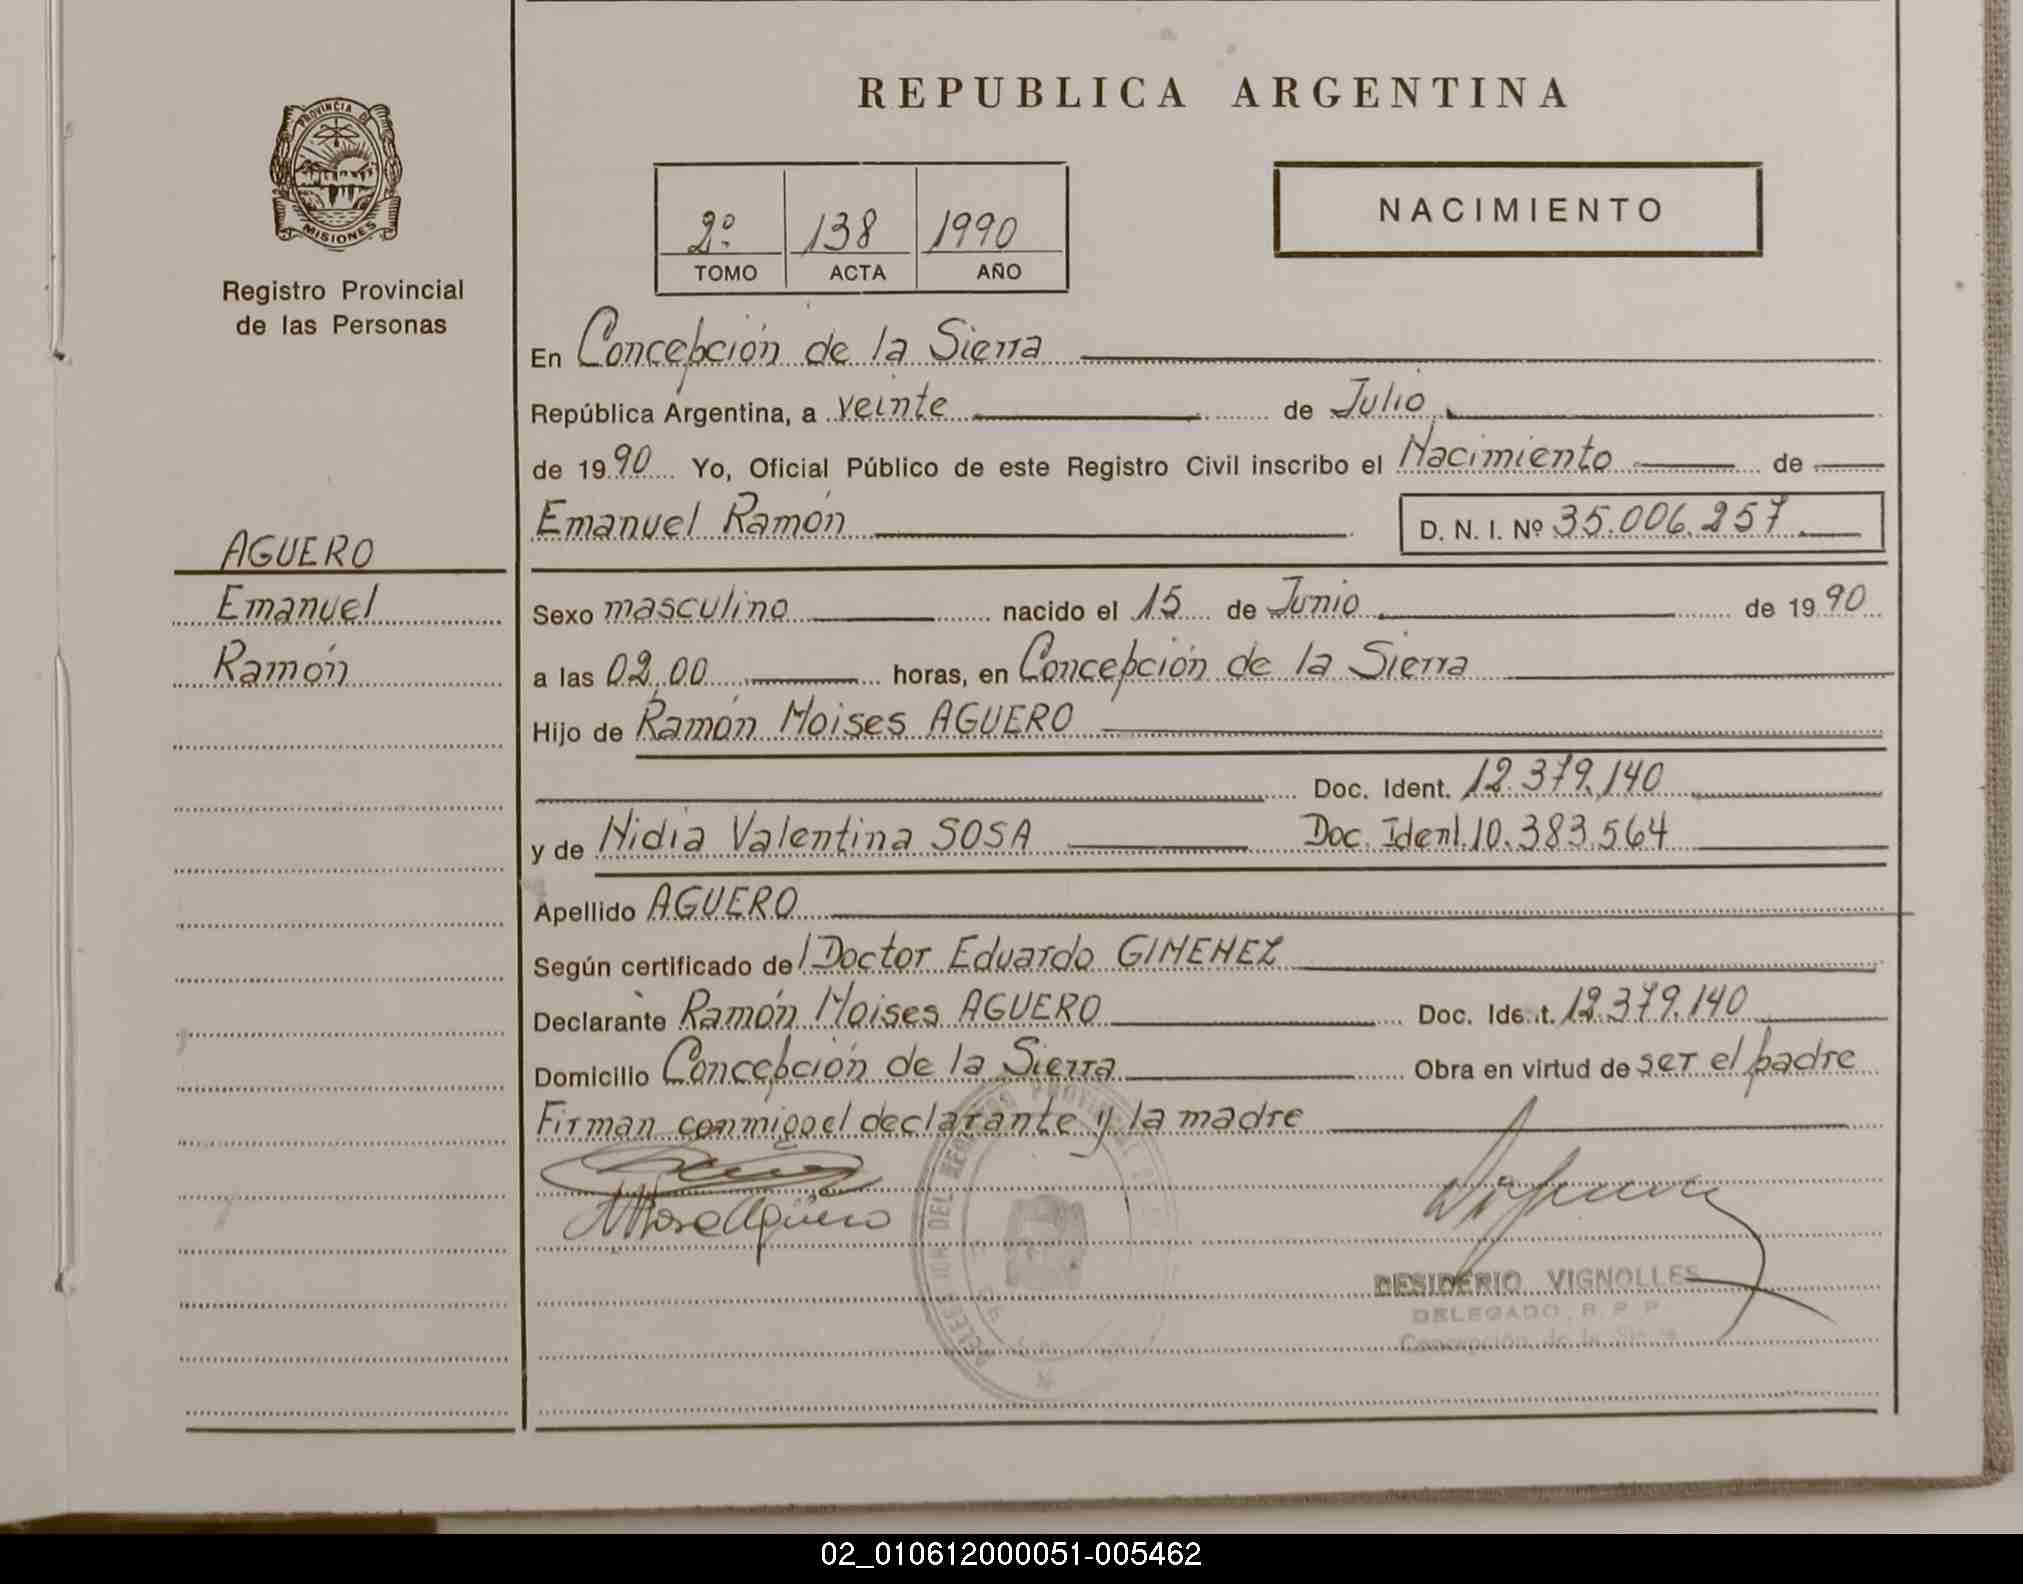 REPUBLICA ARGENTINA
PROVINCIA DE
MISIONES
Registro Provincial
de las Personas
2º 138 1990
TOMO ACTA AÑO
NACIMIENTO
En Concepción de la Sierra
República Argentina, a veinte de Julio
de 1990 Yo, Oficial Público de este Registro Civil inscribo el Nacimiento de
Emanuel Ramón D. N. I. Nº 35.006.257
AGUERO
Emanuel
Ramón
Sexo masculino nacido el 15 de Junio de 1990
a las 02,00 horas, en Concepción de la Sierra
Hijo de Ramón Moises AGUERO
Doc. Ident. 12.379.140
y de Nidia Valentina SOSA Doc. Ident. 10.383.564
Apellido AGUERO
Según certificado del Doctor Eduardo GIMENEZ
Declarante Ramón Moises AGUERO Doc. Ident. 12.379.140
Domicilio Concepción de la Sierra Obra en virtud de ser el padre
Firman conmigo el declarante y la madre
DESIDERIO VIGNOLLES
DELEGADO R. P. P.
Concepción de la Sierra
02_010612000051-005462